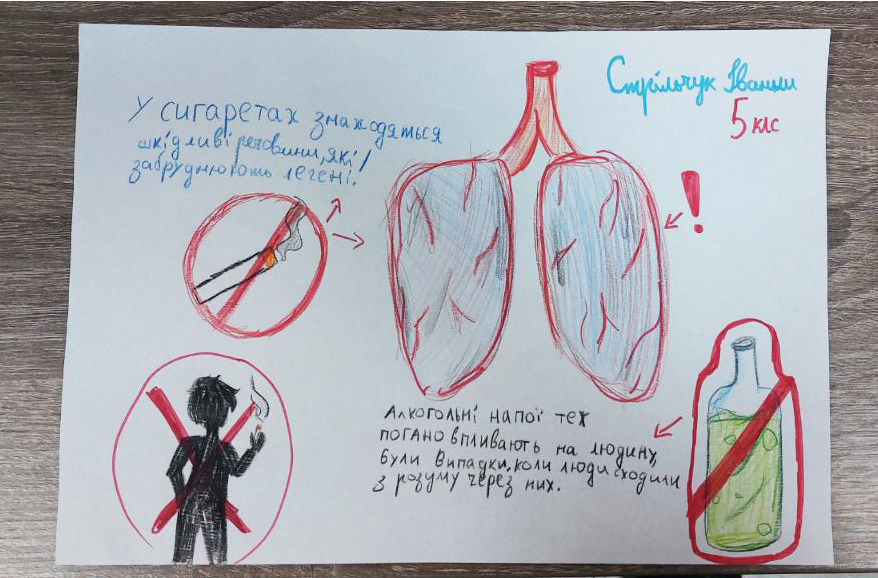 Стрільчук Іванни
5 клс
У сигаретах знаходяться
шкідливі речовини, які
забруднюють легені.
!
Алкогольні напої теж
погано впливають на людину,
були випадки, коли люди сходили
з розуму через них.